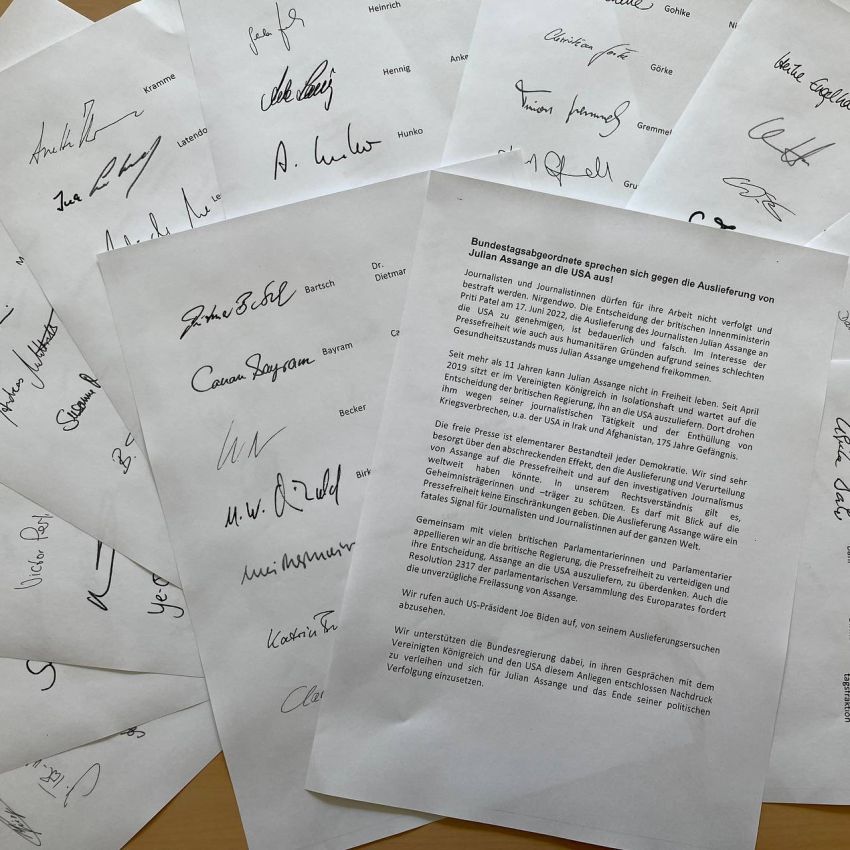 Heinrich
Gohlke
Ni
Kramme
Hennig
Anke
Christian Görke
Görke
Heike Engelha
Latendo
Hunko
A. Hunko
Gremmel
Le
Gru
Bartsch
Dr.
Dietmar
Dietmar Bartsch
Bayram
Ca
Canan Bayram
Becker
Birk
Katrin
Cla
Victor Perl
ye-
M
tagsfraktion
Bundestagsabgeordnete sprechen sich gegen die Auslieferung von
Julian Assange an die USA aus!
Journalisten und Journalistinnen dürfen für ihre Arbeit nicht verfolgt und
bestraft werden. Nirgendwo. Die Entscheidung der britischen Innenministerin
Priti Patel am 17. Juni 2022, die Auslieferung des Journalisten Julian Assange an
die USA zu genehmigen, ist bedauerlich und falsch. Im Interesse der
Pressefreiheit wie auch aus humanitären Gründen aufgrund seines schlechten
Gesundheitszustands muss Julian Assange umgehend freikommen.
Seit mehr als 11 Jahren kann Julian Assange nicht in Freiheit leben. Seit April
2019 sitzt er im Vereinigten Königreich in Isolationshaft und wartet auf die
Entscheidung der britischen Regierung, ihn an die USA auszuliefern. Dort drohen
ihm wegen seiner journalistischen Tätigkeit und der Enthüllung von
Kriegsverbrechen, u.a. der USA in Irak und Afghanistan, 175 Jahre Gefängnis.
Die freie Presse ist elementarer Bestandteil jeder Demokratie. Wir sind sehr
besorgt über den abschreckenden Effekt, den die Auslieferung und Verurteilung
von Assange auf die Pressefreiheit und auf den investigativen Journalismus
weltweit haben könnte. In unserem Rechtsverständnis gilt es,
Geheimnisträgerinnen und –träger zu schützen. Es darf mit Blick auf die
Pressefreiheit keine Einschränkungen geben. Die Auslieferung Assange wäre ein
fatales Signal für Journalisten und Journalistinnen auf der ganzen Welt.
Gemeinsam mit vielen britischen Parlamentarierinnen und Parlamentarier
appellieren wir an die britische Regierung, die Pressefreiheit zu verteidigen und
ihre Entscheidung, Assange an die USA auszuliefern, zu überdenken. Auch die
Resolution 2317 der parlamentarischen Versammlung des Europarates fordert
die unverzügliche Freilassung von Assange.
Wir rufen auch US-Präsident Joe Biden auf, von seinem Auslieferungsersuchen
abzusehen.
Wir unterstützen die Bundesregierung dabei, in ihren Gesprächen mit dem
Vereinigten Königreich und den USA diesem Anliegen entschlossen Nachdruck
zu verleihen und sich für Julian Assange und das Ende seiner politischen
Verfolgung einzusetzen.